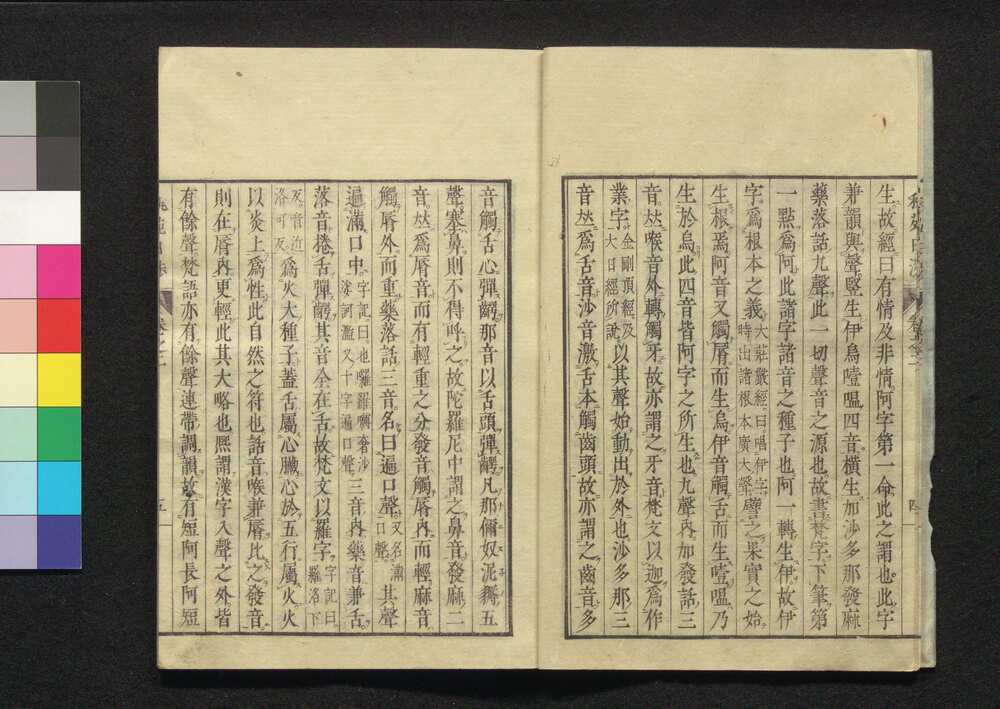 生故經曰有情及非情阿字第一命此之謂也此字
兼韻與聲豎生伊烏噎嗢四音橫生加沙多那發麻
藥落話九聲此一切聲音之源也故書梵字下筆第
一點爲阿此諸字諸音之種子也阿一轉生伊故伊
字爲根本之義大莊嚴經曰唱伊字時出諸根本廣大聲譬之果實之始
生根焉阿音又觸脣而生烏伊音觸舌而生噎嗢乃
生於烏此四音皆阿字之所生也九聲內加發話三
音竝喉音外轉觸牙故亦謂之牙音梵文以迦爲作
業字金剛頂經及大日經所說以其聲始動出於外也沙多那三
音竝爲舌音沙音激舌本觸齒頭故亦謂之齒音多
音觸舌心彈齶那音以舌頭彈齶凡那儞奴泥耨五
聲塞鼻則不得呼之故陀羅尼中謂之鼻音發麻二
音竝爲脣音而有輕重之分發音觸脣內而輕麻音
觸脣外而重藥落話三音名曰遍口聲又名滿口聲其聲
遍滿口中字記曰也囉羅嚩奢沙娑訶濫又十字遍口聲三音內藥音兼舌
落音捲舌彈齶其音全在舌故梵文以羅字字記曰羅洛下
反音近洛可反爲火大種子蓋舌屬心臟心於五行屬火火
以炎上爲性此自然之符也話音喉兼脣比之發音
則在脣內更輕此其大略也熈謂漢字入聲之外皆
有餘聲梵語亦有餘聲連帶調韻故有短阿長阿短
五